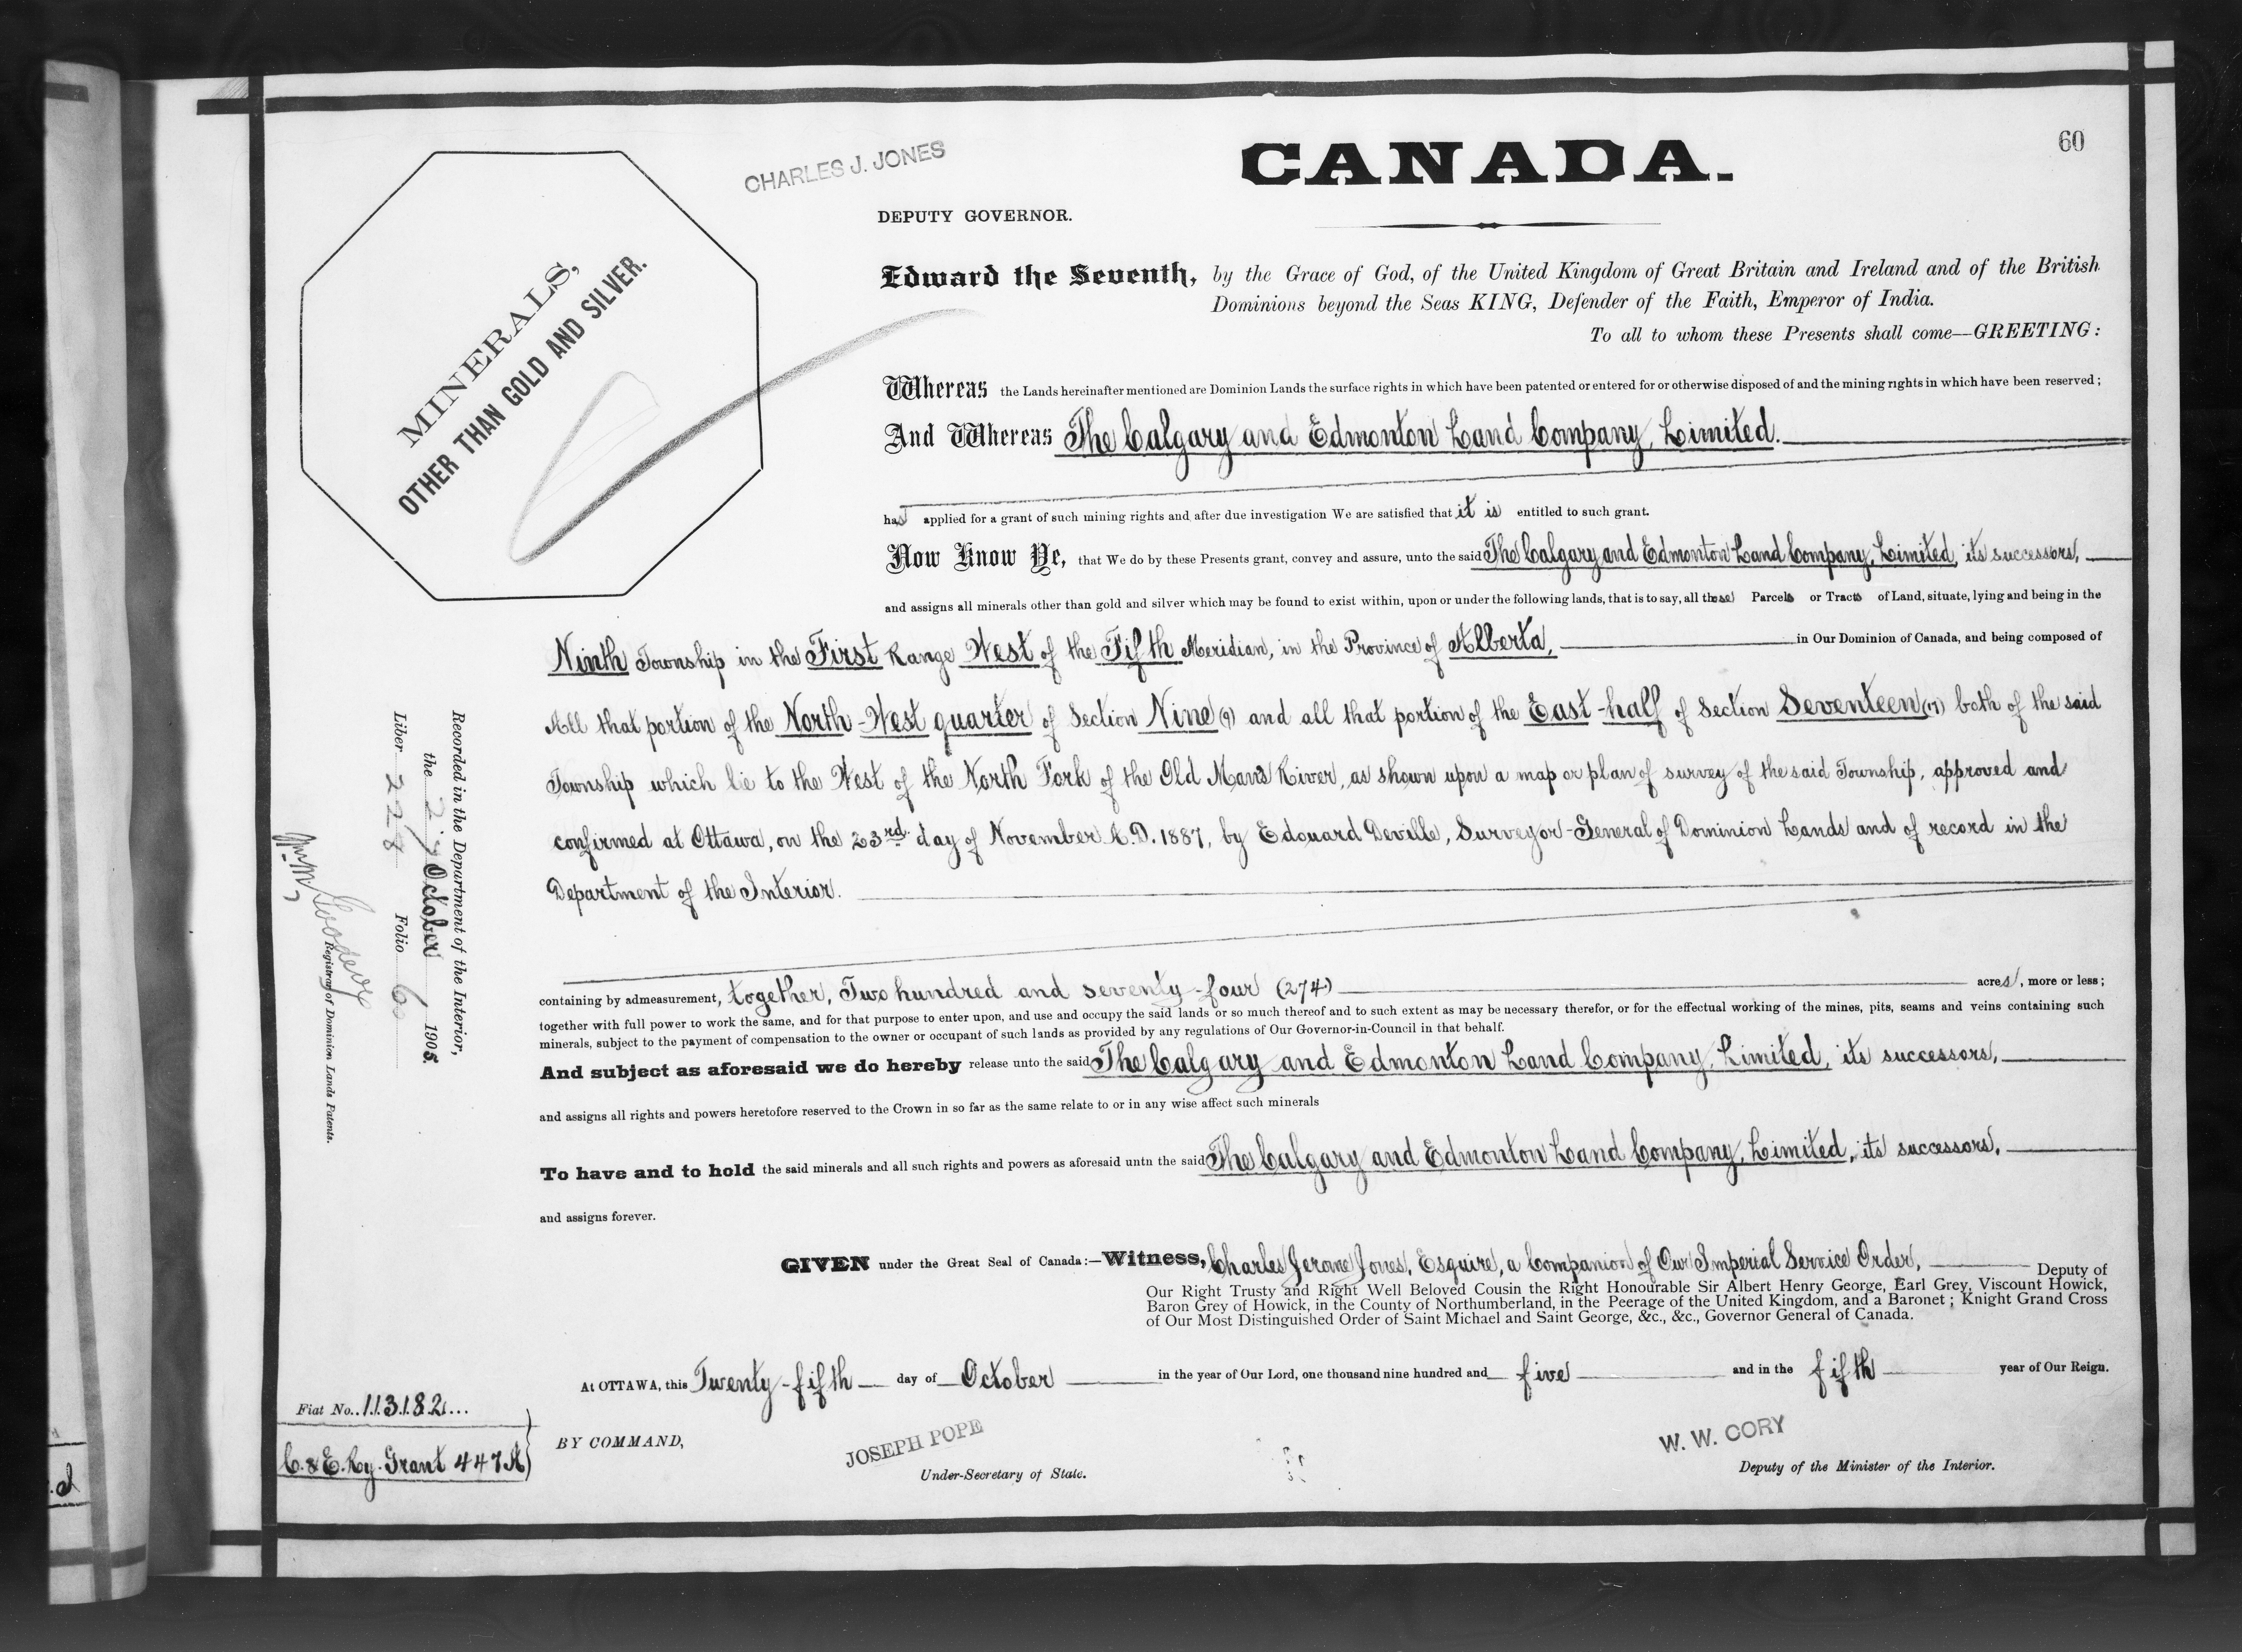 60
CHARLES J. JONES
CANADA.
DEPUTY GOVERNOR.
MINERALS,
OTHER THAN GOLD AND SILVER.
Edward the Seventh, by the Grace of God, of the United Kingdom of Great Britain and Ireland and of the British
Dominions beyond the Seas KING, Defender of the Faith, Emperor of India.
To all to whom these Presents shall come—GREETING:
Whereas the Lands hereinafter mentioned are Dominion Lands the surface rights in which have been patented or entered for or otherwise disposed of and the mining rights in which have been reserved;
And Whereas The Calgary and Edmonton Land Company, Limited.
has applied for a grant of such mining rights and after due investigation We are satisfied that it is entitled to such grant.
Now Know Ye, that We do by these Presents grant, convey and assure, unto the said The Calgary and Edmonton Land Company, Limited, its successors,
and assigns all minerals other than gold and silver which may be found to exist within, upon or under the following lands, that is to say, all those Parcels or Tracts of Land, situate, lying and being in the
Ninth Township in the First Range West of the Fifth Meridian, in the Province of Alberta, in Our Dominion of Canada, and being composed of
All that portion of the North-West quarter of Section Nine (9) and all that portion of the East-half of Section Seventeen (17) both of the said
Township which lie to the West of the North Fork of the Old Mans River, as shown upon a map or plan of survey of the said Township, approved and
confirmed at Ottawa, on the 23rd day of November A.D. 1887, by Edouard Deville, Surveyor-General of Dominion Lands and of record in the
Department of the Interior.
containing by admeasurement, together, Two hundred and seventy-four (274) acres, more or less;
together with full power to work the same, and for that purpose to enter upon, and use and occupy the said lands or so much thereof and to such extent as may be necessary therefor, or for the effectual working of the mines, pits, seams and veins containing such
minerals, subject to the payment of compensation to the owner or occupant of such lands as provided by any regulations of Our Governor-in-Council in that behalf.
And subject as aforesaid we do hereby release unto the said The Calgary and Edmonton Land Company, Limited, its successors,
and assigns all rights and powers heretofore reserved to the Crown in so far as the same relate to or in any wise affect such minerals
To have and to hold the said minerals and all such rights and powers as aforesaid untn the said The Calgary and Edmonton Land Company, Limited, its successors,
and assigns forever.
GIVEN under the Great Seal of Canada:—Witness, Charles Jerome Jones, Esquire, a Companion of Our Imperial Service Order, Deputy of
Our Right Trusty and Right Well Beloved Cousin the Right Honourable Sir Albert Henry George, Earl Grey, Viscount Howick,
Baron Grey of Howick, in the County of Northumberland, in the Peerage of the United Kingdom, and a Baronet; Knight Grand Cross
of Our Most Distinguished Order of Saint Michael and Saint George, &c., &c., Governor General of Canada.
At OTTAWA, this Twenty-fifth day of October in the year of Our Lord, one thousand nine hundred and five and in the fifth year of Our Reign.
BY COMMAND,
JOSEPH POPE
Under-Secretary of State.
W. W. CORY
Deputy of the Minister of the Interior.
Recorded in the Department of the Interior,
the October 1905.
Liber 228 Folio 60
Registrar of Dominion Lands Patents.
Fiat No. 113182
C. & E. Ry. Grant 447A